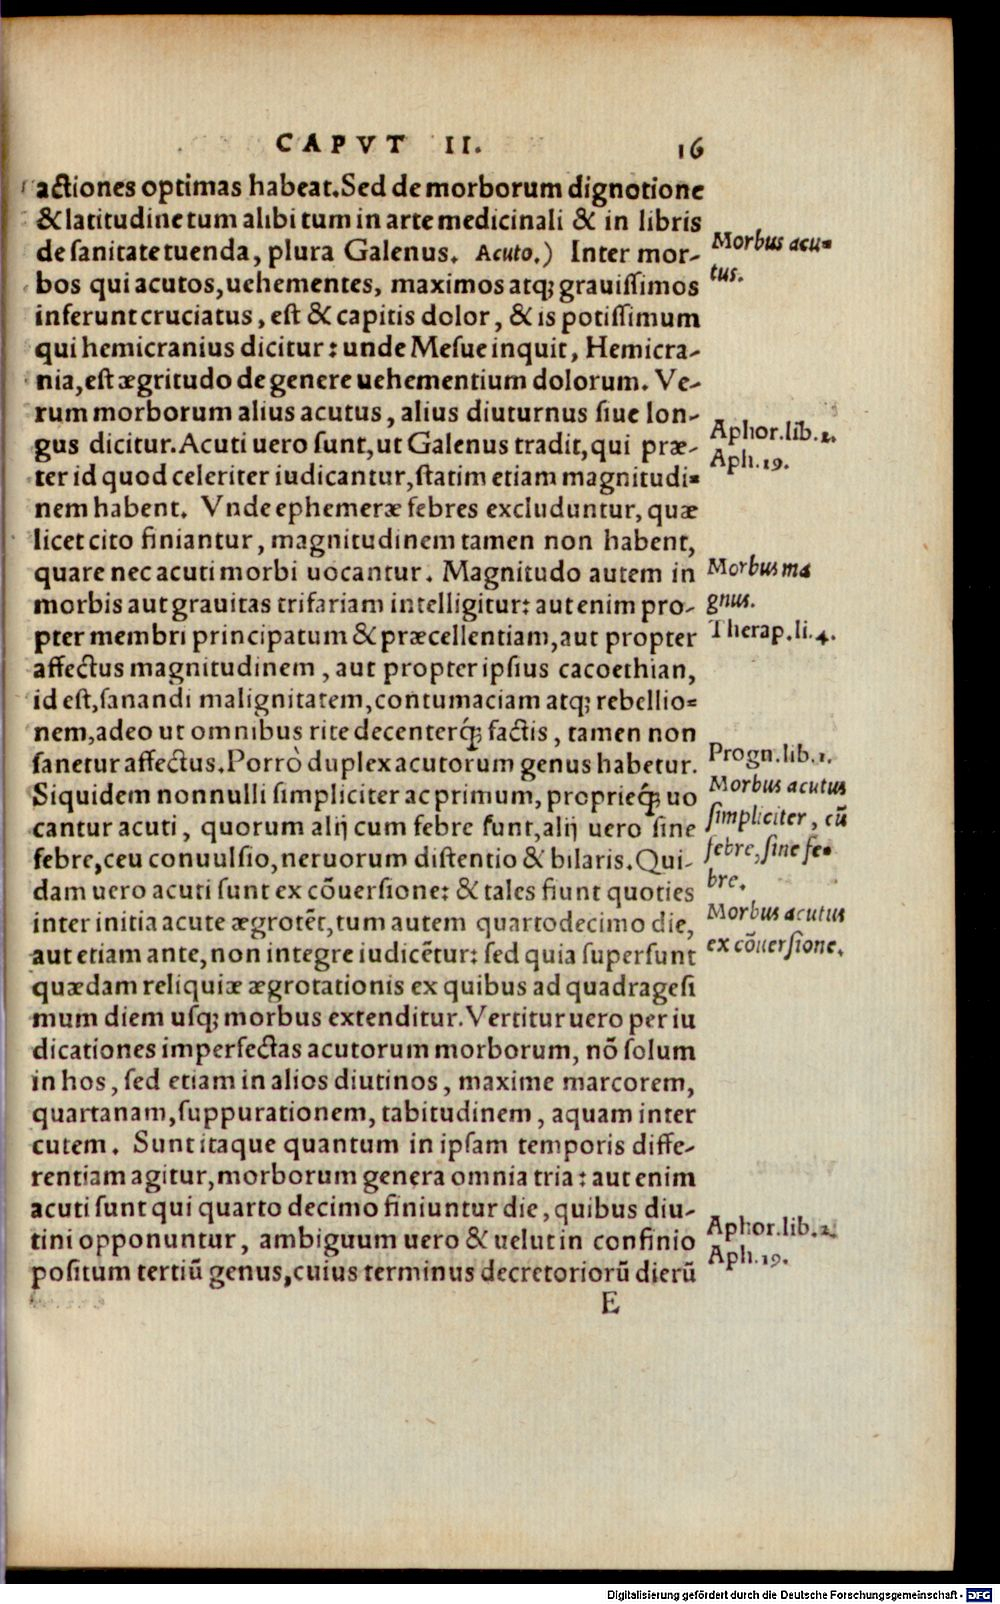 CAPVT II. 16
actiones optimas habeat. Sed de morborum dignotione
& latitudine tum alibi tum in arte medicinali & in libris
de sanitate tuenda, plura Galenus. Acuto.) Inter mor-
Morbus acu=
tus.
bos qui acutos, uehementes, maximos atq; grauissimos
inferunt cruciatus, est & capitis dolor, & is potissimum
qui hemicranius dicitur: unde Mesue inquit, Hemicra-
nia, est ægritudo de genere uehementium dolorum. Ve-
rum morborum alius acutus, alius diuturnus siue lon-
gus dicitur. Acuti uero sunt, ut Galenus tradit, qui præ-
Aphor. lib. 2.
Aph. 19.
ter id quod celeriter iudicantur, statim etiam magnitudi=
nem habent. Vnde ephemeræ febres excluduntur, quæ
licet cito finiantur, magnitudinem tamen non habent,
quare nec acuti morbi uocantur. Magnitudo autem in
Morbus ma
gnus.
morbis aut grauitas trifariam intelligitur: aut enim pro-
pter membri principatum & præcellentiam, aut propter
Therap. li. 4.
affectus magnitudinem, aut propter ipsius cacoethian,
id est, sanandi malignitatem, contumaciam atq; rebellio=
nem, adeo ut omnibus rite decenterq́; factis, tamen non
sanetur affectus. Porrò duplex acutorum genus habetur.
Progn. lib. 1.
Siquidem nonnulli simpliciter ac primum, proprieq́; uo
Morbus acutus
simpliciter, cū
febre, sine fe=
bre.
cantur acuti, quorum alij cum febre sunt, alij uero sine
febre, ceu conuulsio, neruorum distentio & bilaris. Qui-
dam uero acuti sunt ex cōuersione: & tales fiunt quoties
Morbus acutus
ex cōuersione.
inter initia acute ægrotēt, tum autem quartodecimo die,
aut etiam ante, non integre iudicētur: sed quia supersunt
quædam reliquiæ ægrotationis ex quibus ad quadragesi
mum diem usq; morbus extenditur. Vertitur uero per iu
dicationes imperfectas acutorum morborum, nō solum
in hos, sed etiam in alios diutinos, maxime marcorem,
quartanam, suppurationem, tabitudinem, aquam inter
cutem. Sunt itaque quantum in ipsam temporis diffe-
rentiam agitur, morborum genera omnia tria: aut enim
acuti sunt qui quarto decimo finiuntur die, quibus diu-
tini opponuntur, ambiguum uero & uelut in confinio
Aphor. lib. 2.
Aph. 19.
positum tertiū genus, cuius terminus decretoriorū dierū
E
Digitalisierung gefördert durch die Deutsche Forschungsgemeinschaft - DFG